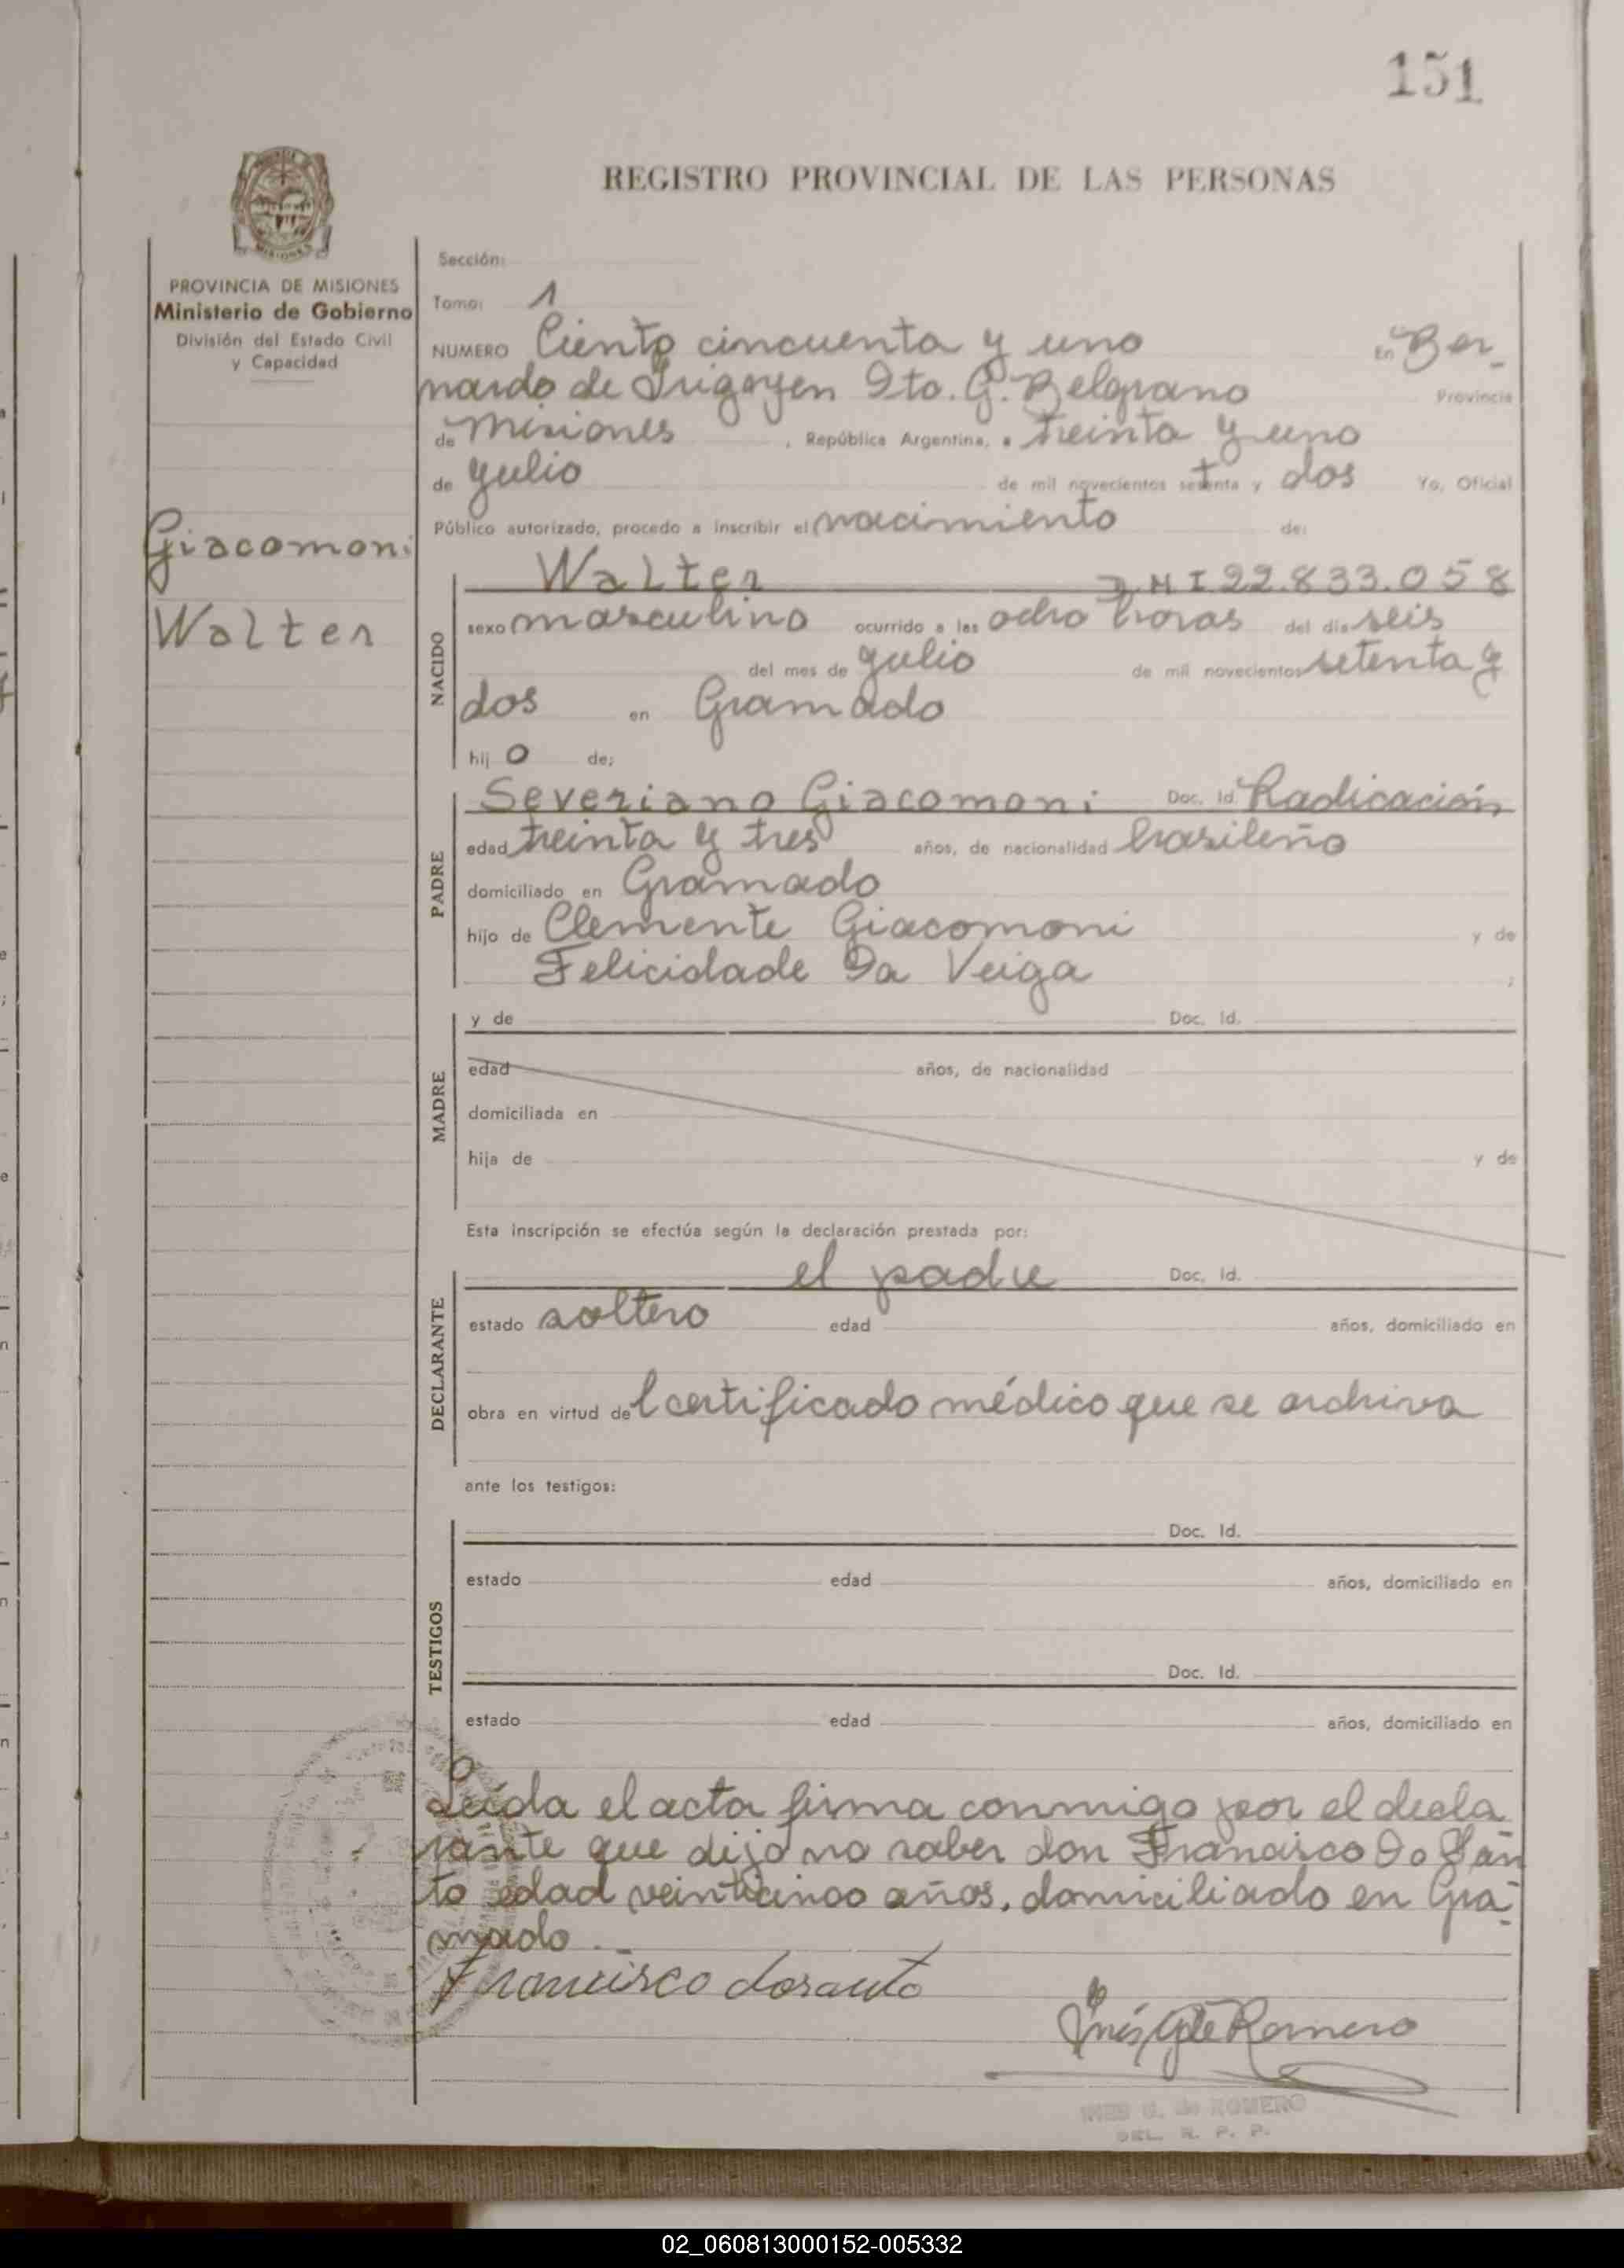 151
REGISTRO PROVINCIAL DE LAS PERSONAS
PROVINCIA DE MISIONES
Ministerio de Gobierno
División del Estado Civil
y Capacidad
Giacomoni
Walter
Sección:
Tomo: 1
NUMERO Ciento cincuenta y uno En Ber_
nardo de Irigoyen Dto. G. Belgrano Provincia
de Misiones, República Argentina, a treinta y uno
de julio de mil novecientos setenta y dos Yo, Oficial
Público autorizado, procedo a inscribir el nacimiento de:
NACIDO
Walter DNI 22.833.058
sexo masculino ocurrido a las ocho horas del día seis
del mes de julio de mil novecientos setenta y
dos en Gramado
hij o de;
PADRE
Severiano Giacomoni Doc. Id. Radicación
edad treinta y tres años, de nacionalidad brasileño
domiciliado en Gramado
hijo de Clemente Giacomoni y de
Felicidade Da Veiga ;
MADRE
y de Doc. Id.
edad años, de nacionalidad
domiciliada en
hija de y de
Esta inscripción se efectúa según la declaración prestada por:
DECLARANTE
el padre Doc. Id.
estado soltero edad años, domiciliado en
obra en virtud del certificado médico que se archiva
ante los testigos:
TESTIGOS
Doc. Id.
estado edad años, domiciliado en
Doc. Id.
estado edad años, domiciliado en
Leída el acta firma conmigo por el decla
rante que dijo no saber don Francisco Do San
to edad veinticinco años, domiciliado en Gra_
mado.
Francisco dosanto
Inés G. de Romero
INES G. de ROMERO
DEL. R. P. P.
02_060813000152-005332